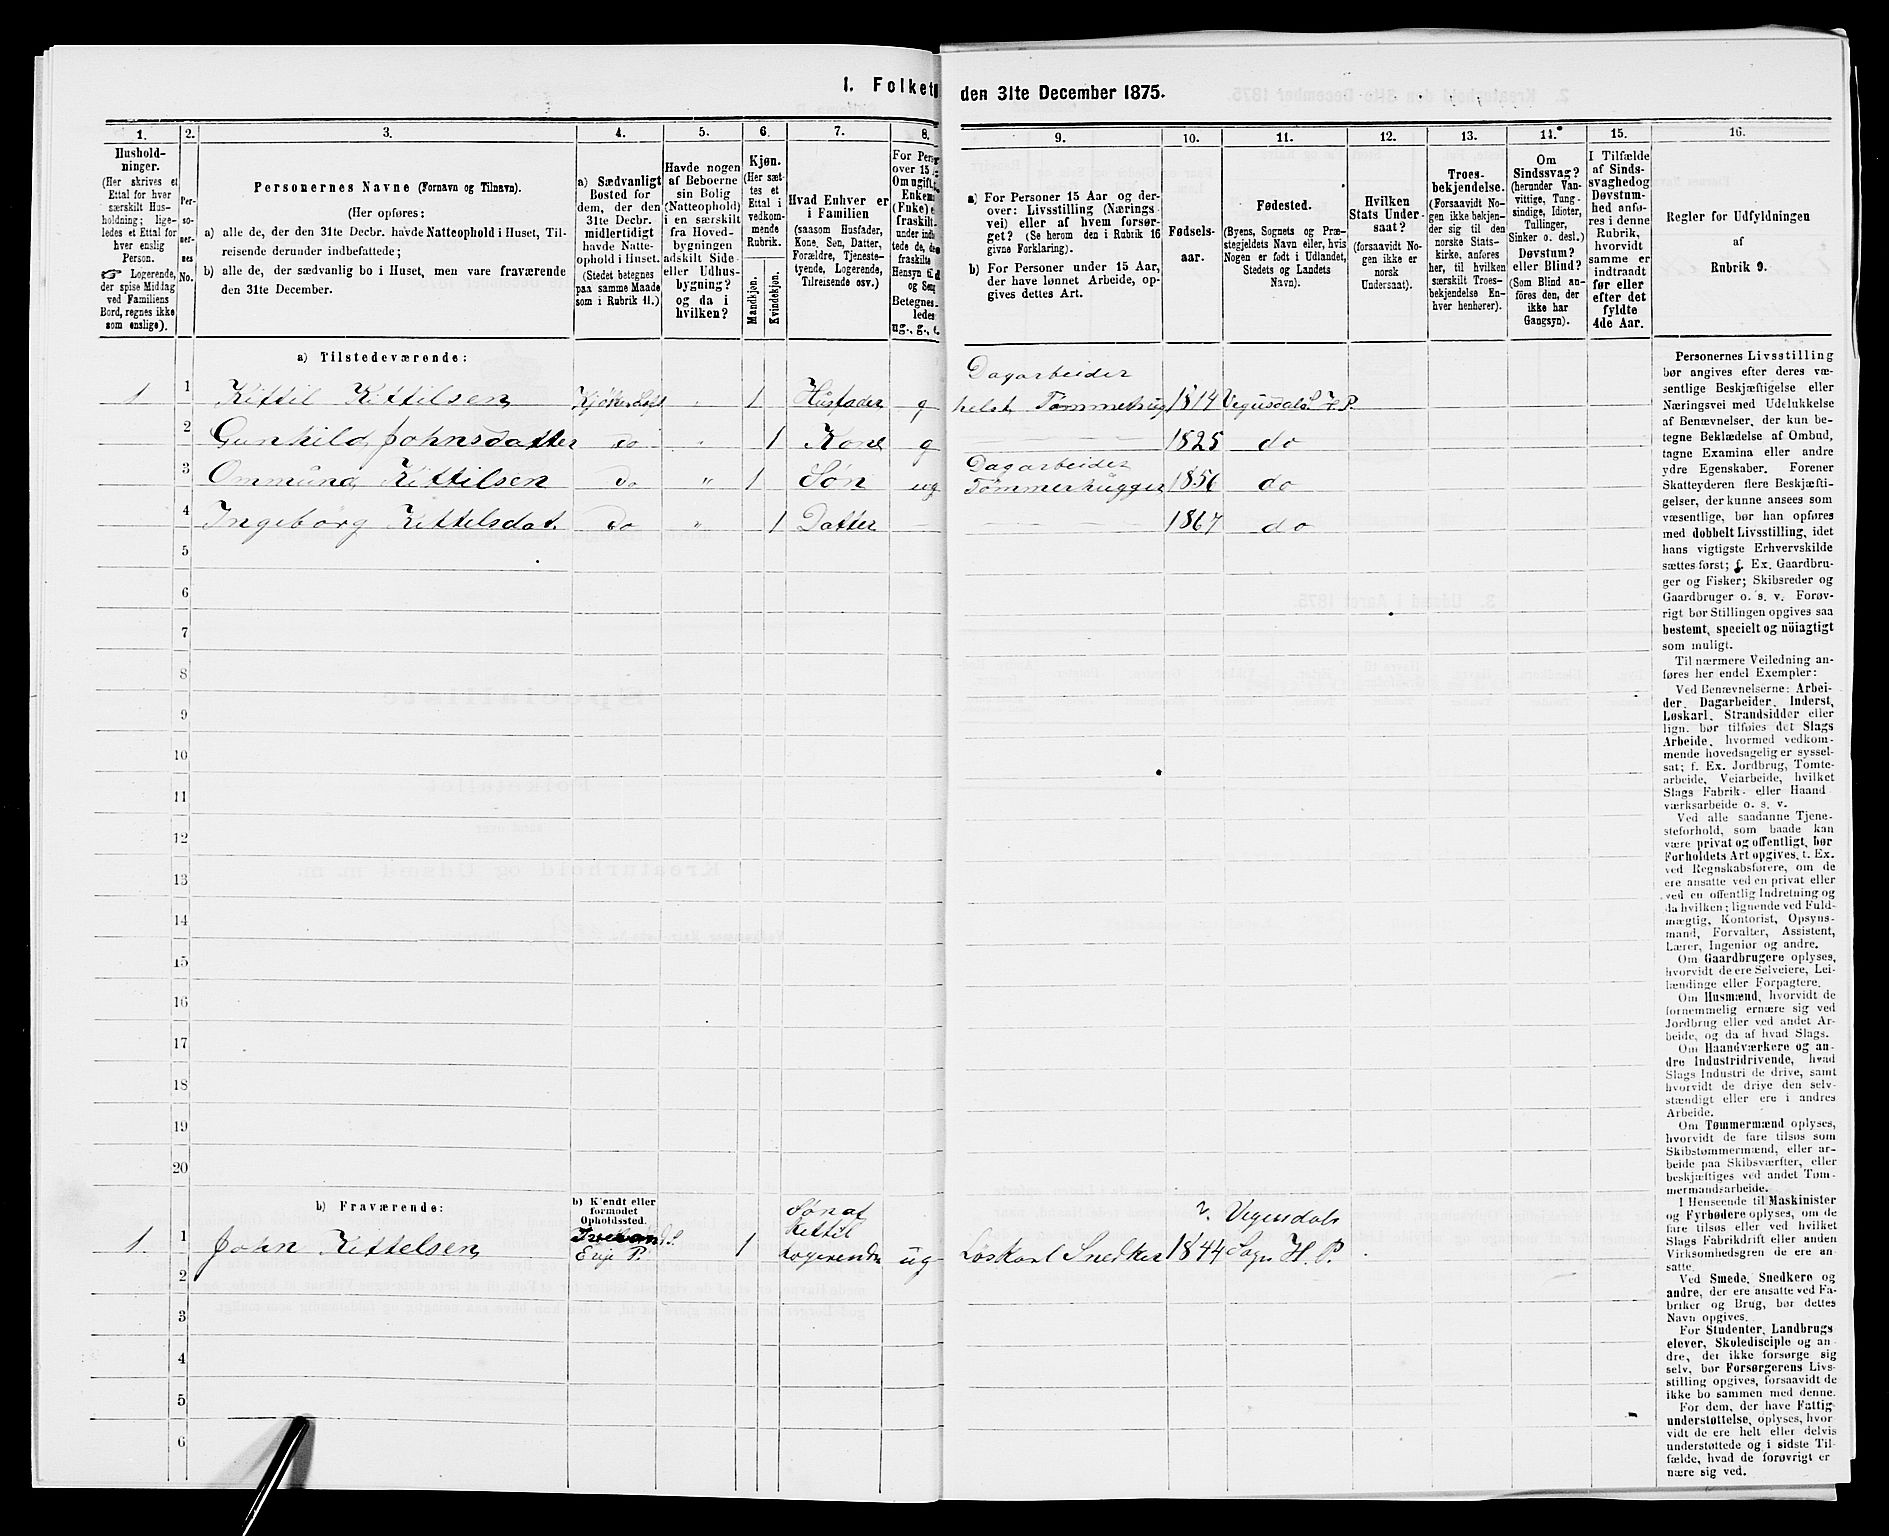 1. Folket
den 31te December 1875.
1. 2. 3. 4. 5. 6. 7. 8. 9. 10. 11. 12. 13. 14. 15. 16.
Hushold-
ninger.
(Her skrives et
Ettal for hver
særskilt Hus-
holdning; lige-
ledes et Ettal for
hver enslig
Person.
☞ Logerende,
der spise Middag
ved Familiens
Bord, regnes ikke
som enslige).
Per-
so-
ner-
nes
No.
Personernes Navne (Fornavn og Tilnavn).
(Her opføres:
a) alle de, der den 31te Decbr. havde Natteophold i Huset, Til-
reisende derunder indbefattede;
b) alle de, der sædvanlig bo i Huset, men vare fraværende
den 31te December.
a) Sædvanligt
Bosted for
dem, der den
31te Decbr.
midlertidigt
havde Natte-
ophold i Huset.
(Stedet betegnes
paa samme Maade
som i Rubrik 11.)
Havde nogen
af Beboerne
sin Bolig
(Natteophold)
i en særskilt
fra Hoved-
bygningen
adskilt Side-
eller Udhus-
bygning?
og da i
hvilken?
Kjøn.
(Her sæt-
tes et
Ettal i
vedkom-
mende
Rubrik.
Mandkjøn.
Kvindekjøn.
Hvad Enhver er
i Familien
(saasom Husfader,
Kone, Søn, Datter,
Forældre, Tjeneste-
tyende, Logerende,
Tilreisende osv.)
For Perso
over 15
Om ugift,
Enkem
(Fuke)
fraskilt
under indb
tede de, d
fraskilte
Hensyn til
og Seng
Betegnes
ledes
ug., g., e
a) For Personer 15 Aar og der-
over: Livsstilling (Nærings-
vei) eller af hvem forsør-
get? (Se herom den i Rubrik 16
givne Forklaring).
b) For Personer under 15 Aar,
der have lønnet Arbeide, op-
gives dettes Art.
Fødsels-
aar.
Fødested.
(Byens, Sognets og Præ-
stegjeldets Navn eller, hvis
Nogen er født i Udlandet,
Stedets og Landets
Navn).
Hvilken
Stats Under-
saat?
(forsaavidt No-
gen ikke er
norsk
Undersaat).
Troes-
bekjendelse.
(Forsaavidt No-
gen ikke bekjen-
der sig til den
norske Stats-
kirke, anføres
her, til hvilken
særskilt Troes-
bekjendelse En-
hver henhører).
Om
Sindssvag?
(herunder Van-
vittige, Tung-
sindige, Idioter,
Sinker o. desl.)
Døvstum?
eller Blind?
(Som Blind an-
føres den, der
ikke har
Gangsyn).
I Tilfælde
af Sinds-
svaghed og
Døvstum-
hed anfø-
res i denne
Rubrik,
hvorvidt
samme er
indtraadt
før eller
efter det
fyldte
4de Aar.
Regler for Udfyldningen
af
Rubrik 9.
a) Tilstedeværende:
1 1 Kittil Kittilsen " 1 Husfader g Dagarbeider
helst Tømmerhug 1814 Vegusdals S H P.
2 Gunhild Johnsdatter do " 1 Kone g 1825 do
3 Ommund Kittilsen do " 1 Søn ug Dagarbeider
Tømmerhugger 1856 do
4 Ingeborg Kittelsdat. do " 1 Datter 1867 do
5
6
7
8
9
10
11
12
13
14
15
16
17
18
19
20
b) Fraværende:
b) Kjendt eller
formodet
Opholdssted.
1 1 John Kittelsen Evje P. 1 Søn af
Kittil
logerende ug Løskarl Snedker 1844 Vegusdals
Sogn H. P.
2
3
4
5
6
Personernes Livsstilling
bør angives efter deres væ-
sentlige Beskjæftigelse eller
Næringsvei med Udelukkelse
af Benævnelser, der kun be-
tegne Beklædelse af Ombud,
tagne Examina eller andre
ydre Egenskaber. Forener
Skatteyderen flere Beskjæfti-
gelser, der kunne ansees som
væsentlige, bør han opføres
med dobbelt Livsstilling, idet
hans vigtigste Erhvervskilde
sættes først; f. Ex. Gaardbru-
ger og Fisker; Skibsreder og
Gaardbruger o. s. v. Forøv-
rigt bør Stillingen opgives saa
bestemt, specielt og nöiagtigt
som muligt.
Til nærmere Veiledning an-
føres her endel Exempler:
Ved Benævnelserne: Arbei-
der, Dagarbeider, Inderst,
Løskarl, Strandsidder eller
lign. bør tilføies det Slags
Arbeide, hvormed vedkom-
mende hovedsagelig er syssel-
sat; f. Ex. Jordbrug, Tomte-
arbeide, Veiarbeide, hvilket
Slags Fabrik- eller Haand
værksarbeide o. s. v.
Ved alle saadanne Tjene-
steforhold, som baade kan
være privat og offentligt, bør
Forholdets Art opgives, t. Ex.
ved Regnskabsførere, om de
ere ansatte ved en privat eller
ved en offentlig Indretning og
da hvilken; lignende ved Fuld-
mægtig, Kontorist, Opsyns-
mand, Forvalter, Assistent,
Lærer, Ingeniør og andre.
Om Gaardbrugere oplyses,
hvorvidt de ere Selveiere, Lei-
lændinge eller Forpagtere.
Om Husmænd, hvorvidt de
fornemmelig ernære sig ved
Jordbrug eller ved andet Ar-
beide, og da af hvad Slags.
Om Haandværkere og an-
dre Industridrivende, hvad
Slags Industri de drive, samt
hvorvidt de drive den selv-
stændigt eller ere i andres
Arbeide.
Om Tømmermænd oplyses,
hvorvidt de fare tilsøs som
Skibstømmermænd, eller ar-
beide paa Skibsværfter, eller
beskjæftiges ved andet Tøm-
mermandsarbeide.
I Henseende til Maskinister
og Fyrbødere oplyses, om de
fare tilsøs eller ved hvilket
Slags Fabrikdrift eller anden
Virksomhedsgren de ere an-
satte.
Ved Smede, Snedkere og
andre, der ere ansatte ved Fa-
briker og Brug, bør dettes
Navn opgives.
For Studenter, Landbrugs
elever, Skoledisciple og an-
dre, der ikke forsørge sig
selv, bør Forsørgerens Livs-
stilling opgives, forsaavidt de
ikke bo sammen med denne.
For dem, der have Fattig-
understøttelse, oplyses, hvor-
vidt de ere helt eller delvis
understøttede og i sidste Til-
fælde, hvad de forøvrigt er
nære sig ved.